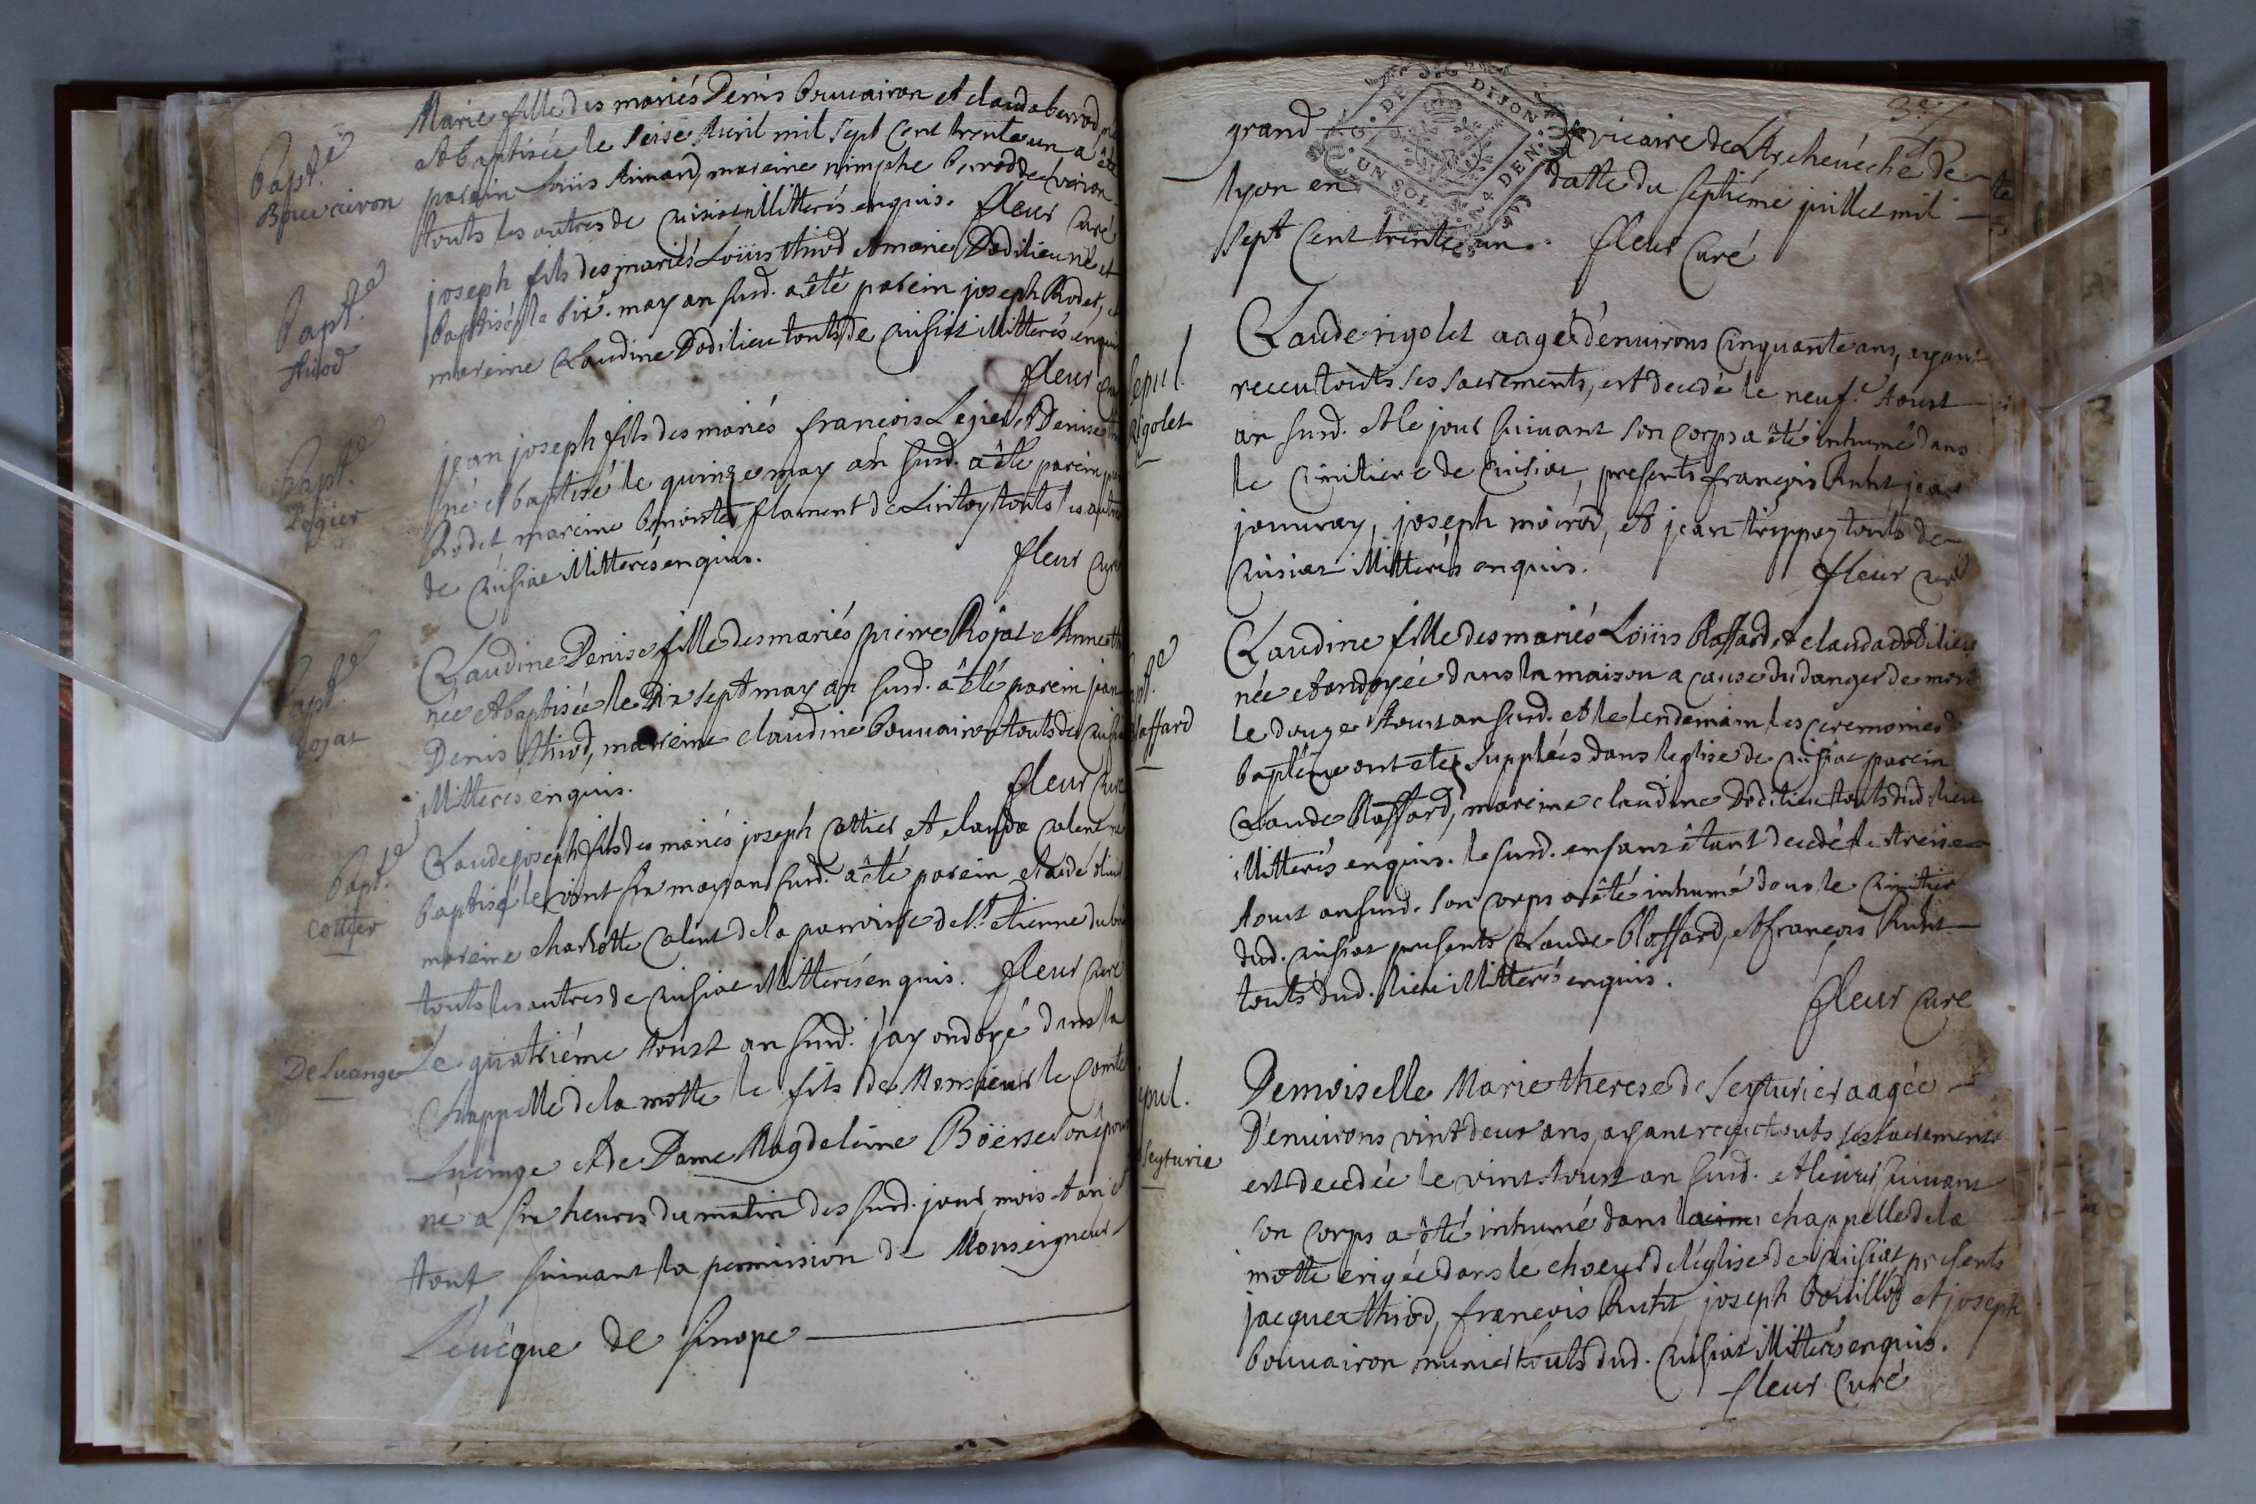 Bapt.e
Bouvairon
Marie fille des mariés Denis bouvairon et clauda berrod
et baptisée le seise Auril mil sept cent trente un a été
parein Louis Aimard, mareine nimphe berrod de verion
touts les autres de cuisiat illitterés enquis. fleur curé
Bapt.e
thiod
joseph fils des mariés Loüis thiod et marie Dodilieu né et
baptisé le six.e may an susd. a été parein joseph Rodet,
mareine Claudine Dodilieu touts de cuisiat illitterés enquis
fleur curé
Bapt.e
Legier
jean joseph fils des mariés francois Legier et Denise
né et baptisé le quinze may an susd. a été parein
Rodet mareine benoiste flament de touts les autres
de cuisiat illitterés enquis.
fleur curé
Bapt.e
Rojat
Claudine Denise fille des mariés pierre Rojat et Anne
née et baptisée le dix sept may an susd. a été parein jean
Denis thiod, mareine claudine bouvairon touts de cuisiat
illitterés enquis.
fleur curé
Bapt.e
cottier
Claude joseph fils des mariés joseph cottier et clauda calent né
baptisé le vint six may an susd. a été parein claude
mareine charlotte calent de la parroisse de st. etienne du bois
touts les autres de cuisiat illitterés enquis. fleur curé
De Luange
Le quatriéme Aoust an susd. j'ay ondoyé dans la
Chappelle de la motte le fils de Monsieur le comte
Luange et de Dame Magdeleine Böerse son épouse
né a six heures du matin des susd. jour mois et an et
tout suivant la permission de Monseigneur
L'euêque de sinope
grand vicaire de L'Archeuêché de
lyon en datte du septiéme juillet mil
sept cent trente un. fleur curé
G. DE DIJON
UN SOL 4 DEN.
Sepul.
Rigolet
Claude rigolet aagé d'enuirons cinquante ans, ayant
receu touts ses sacrements, est decedé le neuf.e Aoust
an susd. et le jour suiuant son corps a été inhumé dans
le cimitiere de cuisiat, presents françois Ruht jean
jouuray, joseph moirod, et jean trippoz touts de
cuisiat illitterés enquis.
fleur curé
Bapt.e
Blaffard
Claudine fille des mariés Loüis Blaffard et clauda dodilieu
née et ondoyée dans la maison a cause du danger de mort
le douze Aoust an susd. et le lendemain les ceremonies du
baptéme ont eté supplées dans l'eglise de cuisiat parein
Claude Blaffard, mareine claudine Dodilieu touts dud. lieu
illitterés enquis. le susd. enfant êtant decedé le treise
Aoust an susd. son corps a été inhumé dans le cimitier
dud. cuisiat presents claude blaffard, et francois Ruht
touts dud. lieu illitterés enquis.
fleur curé
Sepul.
Seyturie
Demoiselle Marie therese de Seyturier aagée
D'enuirons vint deux ans, ayant receu touts ses sacrements
est decedée le vint Aoust an susd. et le jour suiuant
son corps a été inhumé dans la chappelle de la
motte erigée dans le choeur de l'église de cuisiat presents
jacques thiod, francois Ruht, joseph bouillod et joseph
bouuairon munier touts dud. cuisiat illitterés enquis.
fleur curé